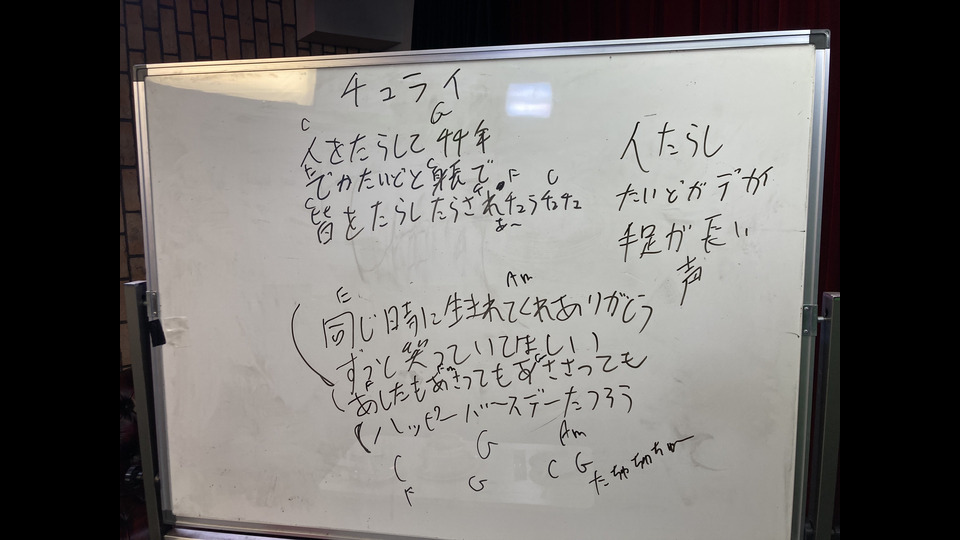 チュライ
C G
人をたらして44年
F C
でかたいどと身長で
C F C
皆をたらしたらされチュラチュチュ
あ〜
人たらし
たいどがデカイ
手足が長い
声
F Am
同じ日時に生まれてくれありがとう
ずっと笑っていてほしい
あしたもあさってもしあさっても
ハッピーバースデーたつろう
C G Am
F G C G
たちゃちゃちゃー